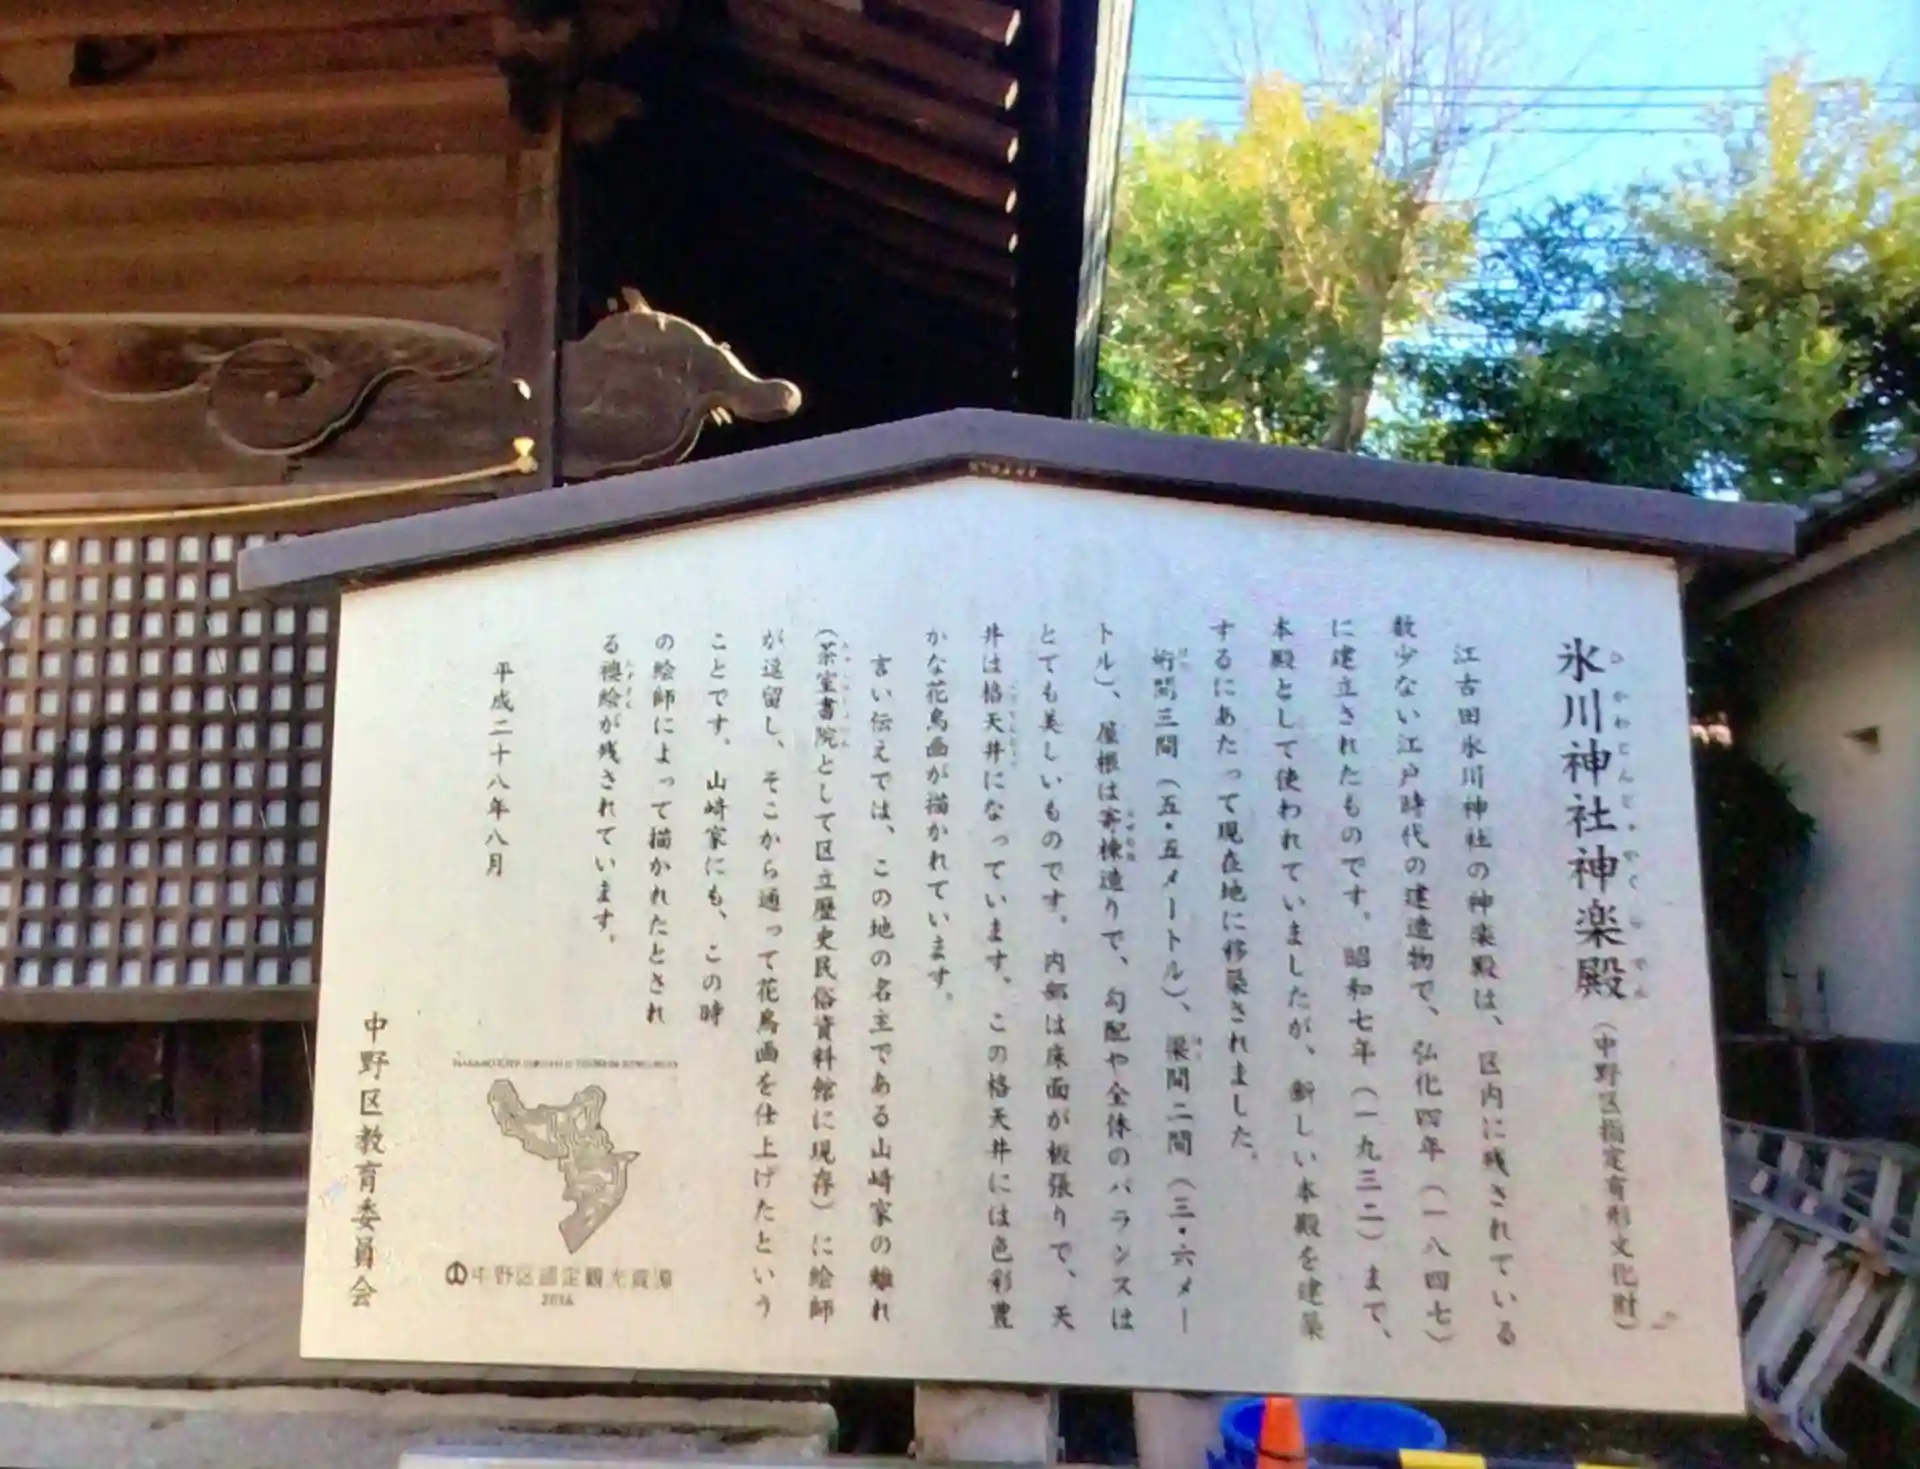 氷川神社神楽殿（中野区指定有形文化財）
江古田氷川神社の神楽殿は、区内に残されている
数少ない江戸時代の建造物で、弘化四年（一八四七）
に建立されたものです。昭和七年（一九三二）まで、
本殿として使われていましたが、新しい本殿を建築
するにあたって現在地に移築されました。
桁間三間（五・五メートル）、梁間二間（三・六メー
トル）、屋根は寄棟造りで、勾配や全体のバランスは
とても美しいものです。内部は床面が板張りで、天
井は格天井になっています。この格天井には色彩豊
かな花鳥画が描かれています。
言い伝えでは、この地の名主である山崎家の離れ
（茶室書院として区立歴史民俗資料館に現存）に絵師
が逗留し、そこから通って花鳥画を仕上げたという
ことです。山崎家にも、この時
の絵師によって描かれたとされ
る襖絵が残されています。
平成二十八年八月
中野区教育委員会
中野区認定観光資源
2014